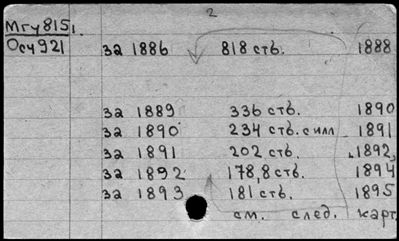 2
Мгу815,
Осч921
за 1886 818 стб. 1888
за 1889 336 стб. 1890
за 1890 234 стб. с илл 1891
за 1891 202 стб. 1892,
за 1892 178,8 стб. 1894
за 1893 181 стб. 1895
см. след. карт.